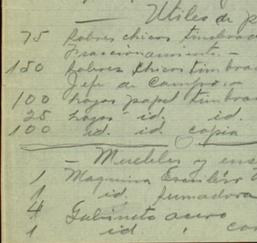 - Utiles de
75 Sobres chicos timbrad
Fraccionamiento -
150 Sobres chicos timbra
Jefe de Campaña
100 hojas papel timbra
25 hojas id. id.
100 id. id. copia
- Muebles y ens
1 Maquina Escribir
1 id, sumadora
4 Gabinete acero
1 id ,